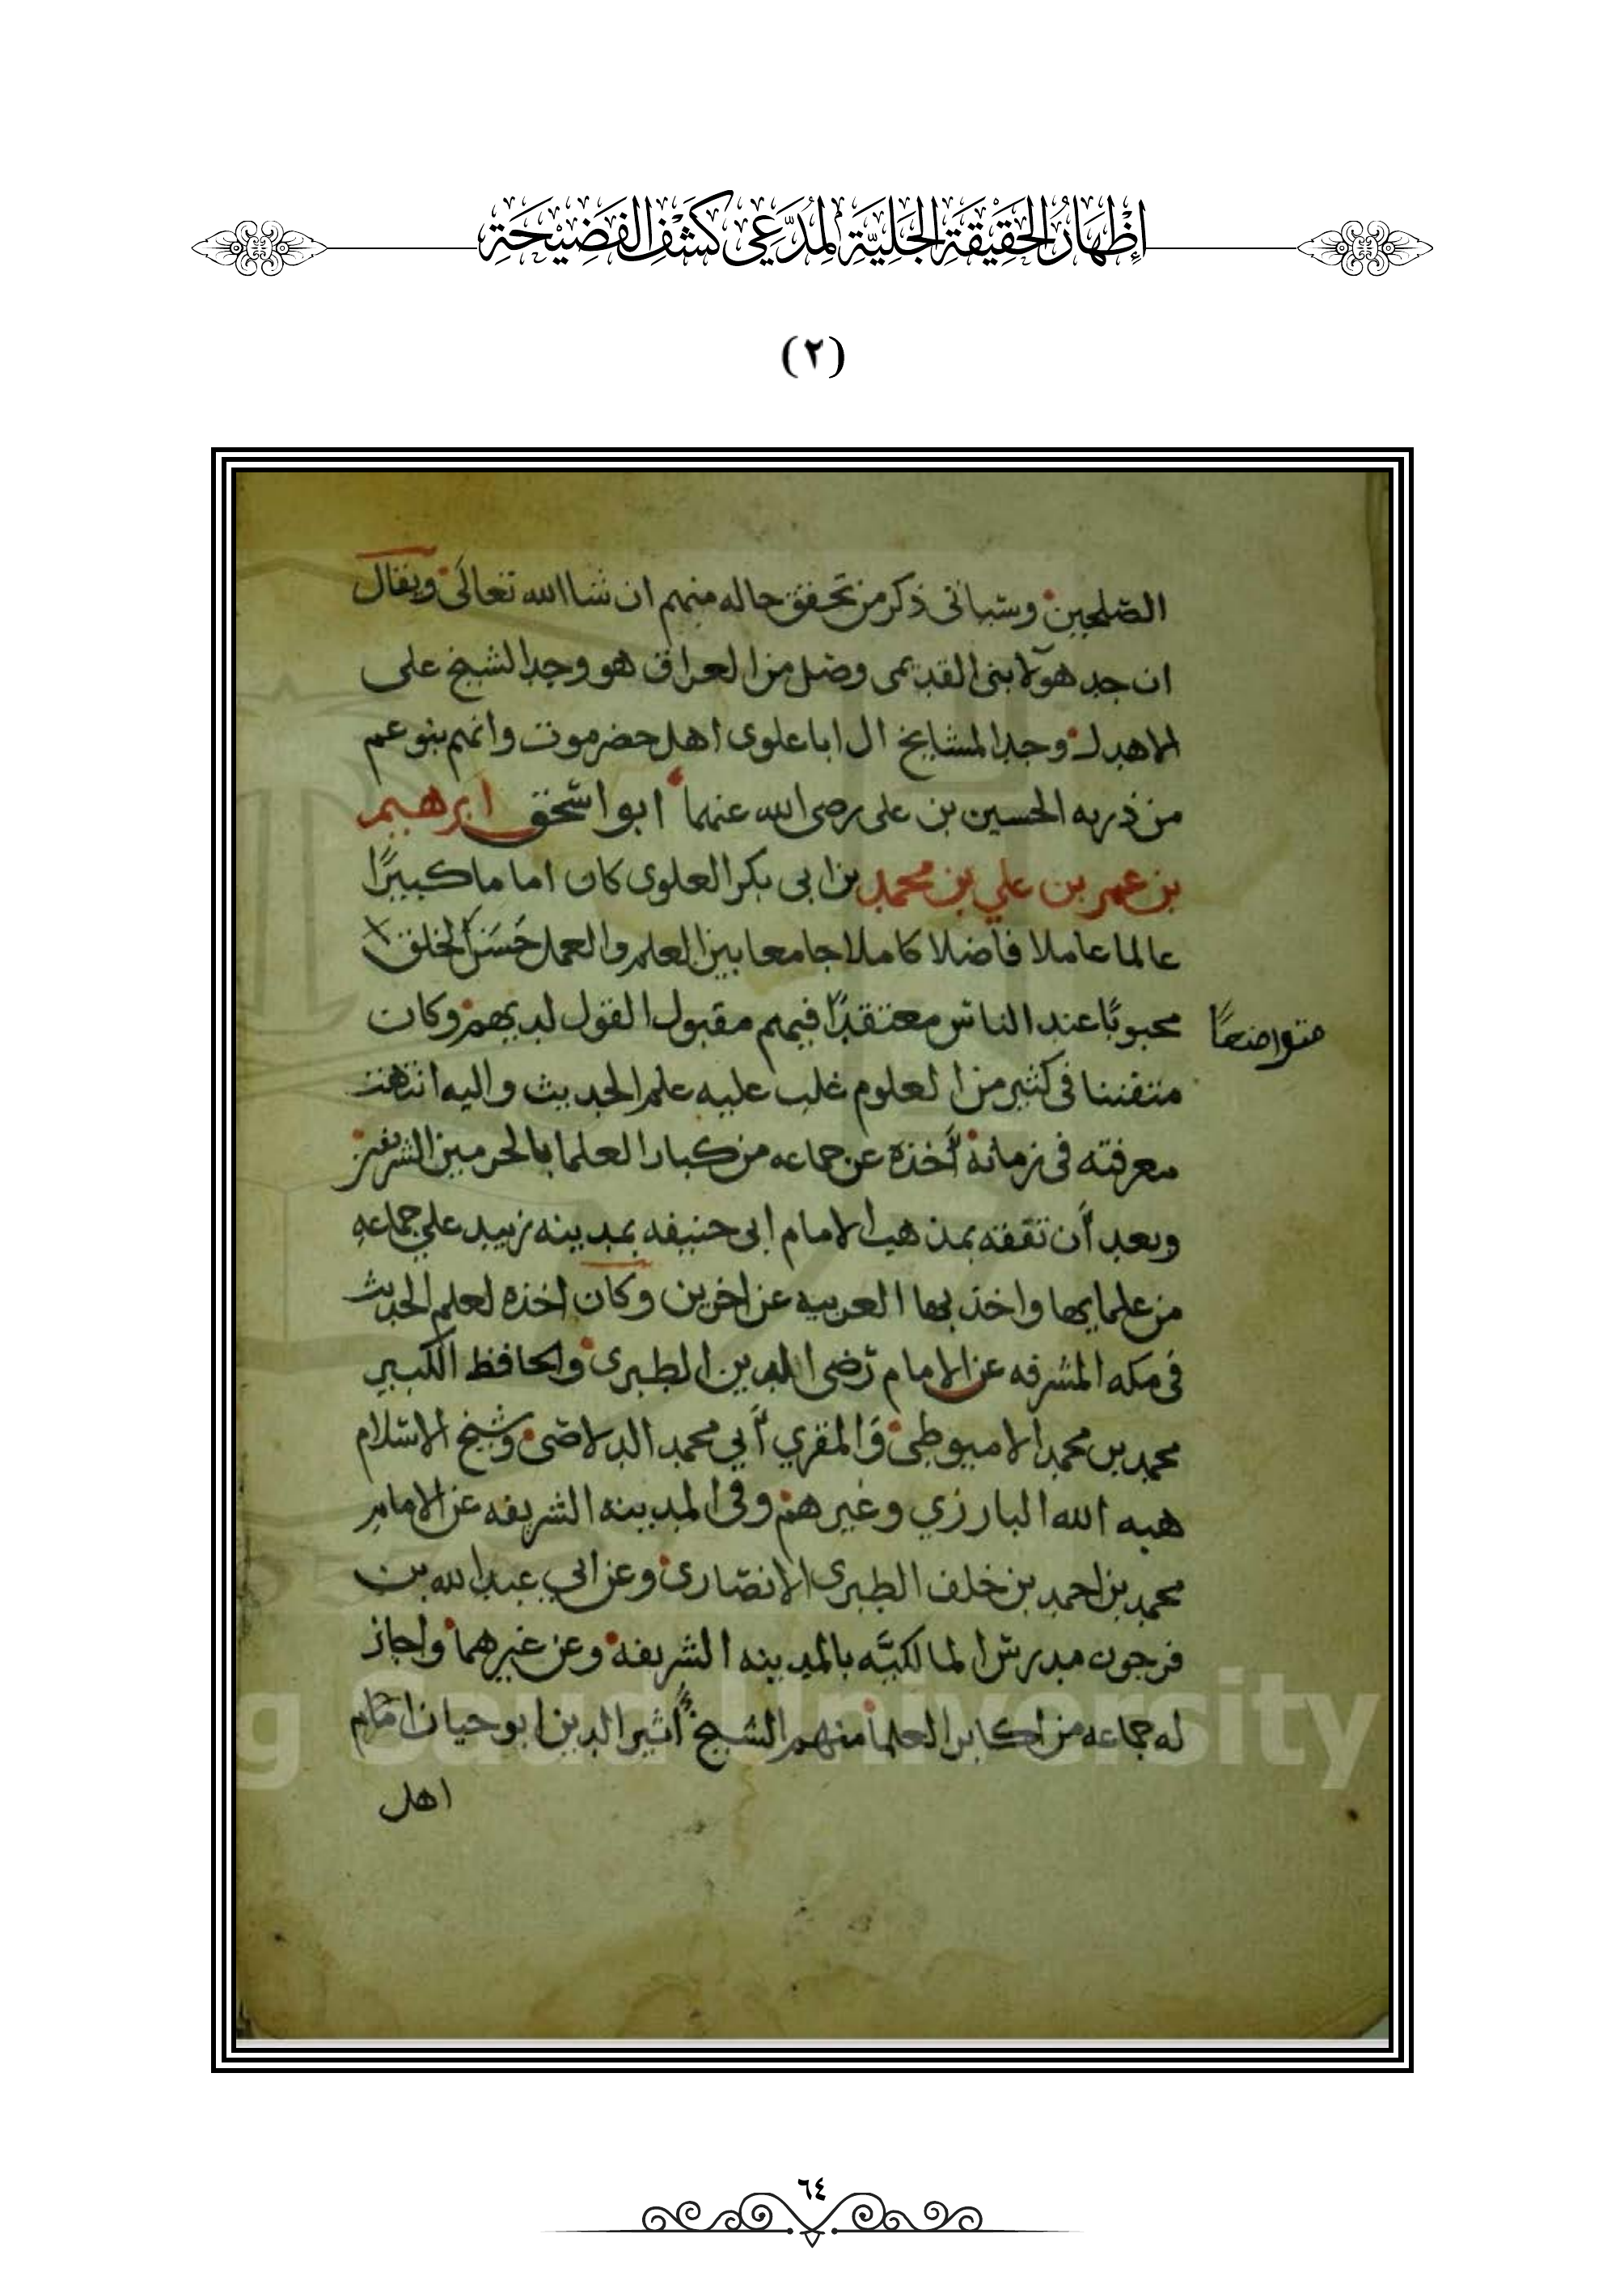 إِظْهَارُ الحَقِيْقَةِ الجَلِيَّةِ لِمُدَّعِي كَشْفِ الفَضِيْحَةِ
(٢)
الصلحين وسياتى ذكر من تحقق حاله منهم ان شاالله تعالى ويقال
ان جد هولا بنى القديمى وصل من العراق هو وجد الشيخ على
الاهدل وجد المشايخ ال ابا علوى اهل حضرموت وانهم بنو عم
من ذريه الحسين بن على رضى الله عنهما ابو اسحق ابرهيم
بن عمر بن علي بن محمد بن ابى بكر العلوى كان اماما كبيرًا
عالما عاملا فاضلا كاملا جامعا بين العلم والعمل حَسَنَ الخلق
متواضعًا
محبوبًا عند الناس معتقدًا فيهم مقبول القول لديهم وكان
متفننا فى كثير من العلوم غلب عليه علم الحديث واليه انتهت
معرفته فى زمانه أخذه عن جماعه من كبار العلما بالحرمين الشريفين
وبعد أن تفقه بمذهب الامام ابى حنيفه بمدينه زبيد علي جماعه
من علمايها واخذ بها العربيه عن اخرين وكان اخذه لعلم الحديث
فى مكه المشرفه عن الامام رضى الدين الطبرى والحافظ الكبير
محمد بن محمد الاميوطى وَالمقري أبي محمد الدلاصى وشيخ الاسلام
هبه الله البارزي وغيرهم وفى المدينه الشريفه عن الامام
محمد بن احمد بن خلف الطبرى الانصارى وعن ابي عبدالله بن
فرحون مدرس المالكيَّه بالمدينه الشريفه وعن غيرهما واجاز
له جماعه من اكابر العلما منهم الشيخ أثير الدين ابو حيان امام
اهل
King Saud University
٦٤